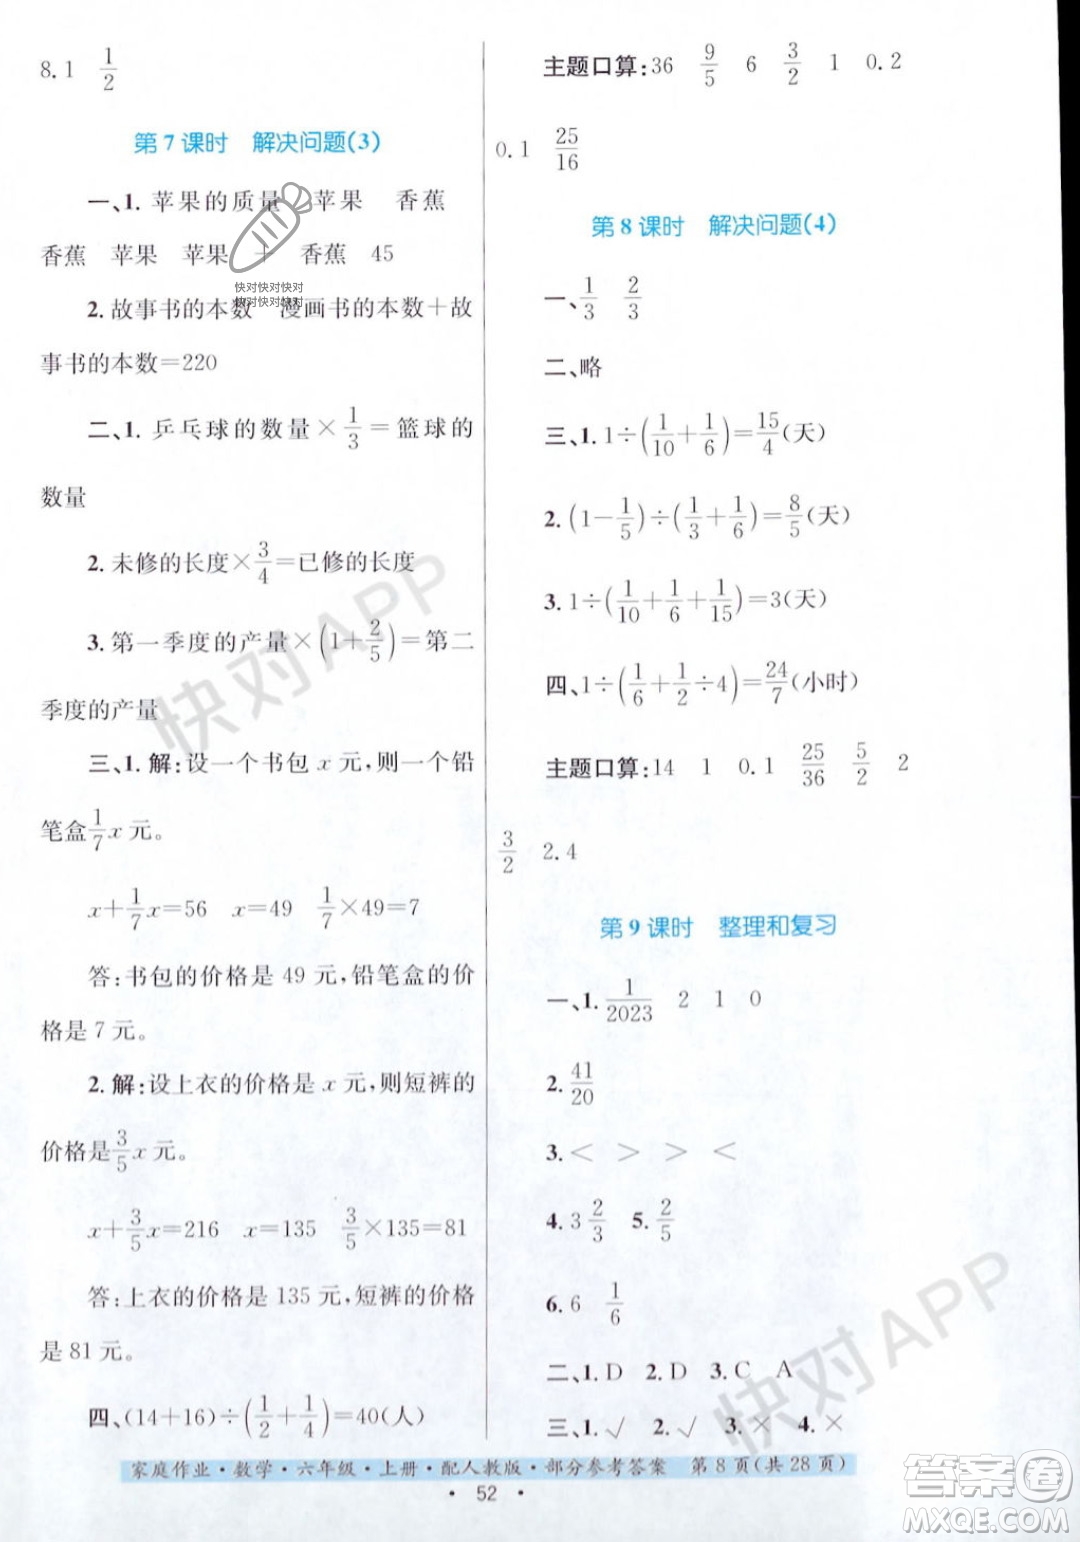 8.1 1/2
第7课时 解决问题(3)
一、1. 苹果的质量 苹果 香蕉
香蕉 苹果 苹果 + 香蕉 45
2. 故事书的本数 漫画书的本数+故
事书的本数=220
二、1. 乒乓球的数量×1/3=篮球的
数量
2. 未修的长度×3/4=已修的长度
3. 第一季度的产量×(1+2/5)=第二
季度的产量
三、1. 解:设一个书包 x 元,则一个铅
笔盒1/7x 元。
x+1/7x=56 x=49 1/7×49=7
答:书包的价格是 49 元,铅笔盒的价
格是 7 元。
2. 解:设上衣的价格是 x 元,则短裤的
价格是3/5x 元。
x+3/5x=216 x=135 3/5×135=81
答:上衣的价格是 135 元,短裤的价格
是 81 元。
四、(14+16)÷(1/2+1/4)=40(人)
主题口算:36 9/5 6 3/2 1 0.2
0.1 25/16
第8课时 解决问题(4)
一、1/3 2/3
二、略
三、1. 1÷(1/10+1/6)=15/4(天)
2. (1-1/5)÷(1/3+1/6)=8/5(天)
3. 1÷(1/10+1/6+1/15)=3(天)
四、1÷(1/6+1/2÷4)=24/7(小时)
主题口算:14 1 0.1 25/36 5/2 2
3/2 2.4
第9课时 整理和复习
一、1. 1/2023 2 1 0
2. 41/20
3. < > > <
4. 3 2/3 5. 2/5
6. 6 1/6
二、1. D 2. D 3. C A
三、1. √ 2. √ 3. × 4. ×
家庭作业·数学·六年级·上册·配人教版·部分参考答案 第 8 页(共 28 页)
· 52 ·
快对快对快对
快对快对快对
快对APP
快对APP
答案圈
MXQE.COM